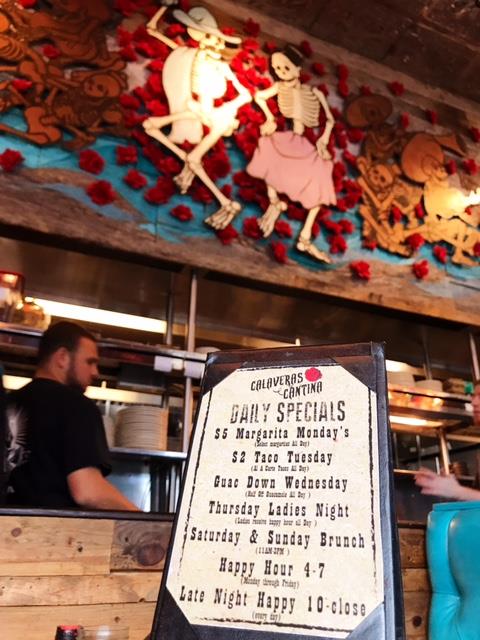 CALAVERAS
CANTINA
DAILY SPECIALS
$5 Margarita Monday's
(Select margaritas All Day)
$2 Taco Tuesday
(Al A Carte Tacos All Day)
Guac Down Wednesday
(Half Off Guacamole All Day)
Thursday Ladies Night
(Ladies receive happy hour all Day)
Saturday & Sunday Brunch
(11AM-2PM)
Happy Hour 4-7
(Monday through Friday)
Late Night Happy 10-close
(every day)